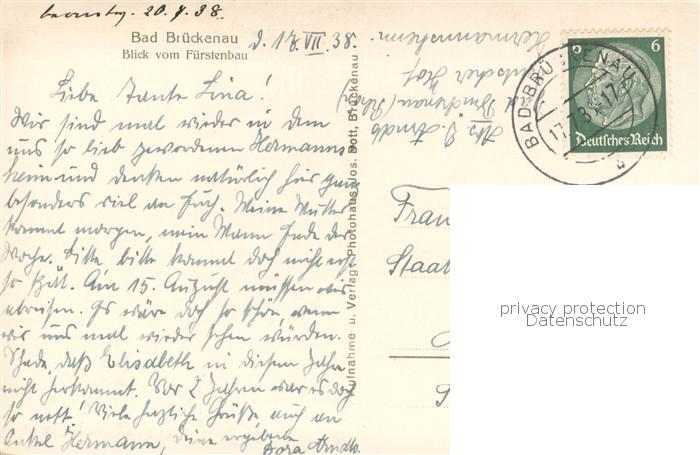 beantw. 20.7.38.
Bad Brückenau
Blick vom Fürstenbau
d. 17. VII. 38.
Liebe Tante Lina!
Wir sind mal wieder in dem
uns so lieb gewordenen Hermanns-
heim und denken natürlich hier ganz
besonders viel an Euch. Meine Mutter
kommt morgen, mein Mann Ende der
Woche. Bitte bitte kommt doch nicht erst
so spät. Am 15. August müssen wir
abreisen. Es wäre doch so schön, wenn
wir uns mal wieder sehen würden.
Schade, daß Elisabeth in diesem Jahre
nicht herkommt. Vor 2 Jahren war es doch
so nett! Viele herzliche Grüße auch an
Onkel Hermann, Deine ergebene
Dora Arndts.
Aufnahme u. Verlag: Photohaus Jos. Dott, Brückenau
Abs. D. Arndts
Bad Brückenau (Rhön)
Hermannsheim
6
Deutsches Reich
BAD BRÜCKENAU
17.7.38.-17
b
Frau
Staat
privacy protection
Datenschutz